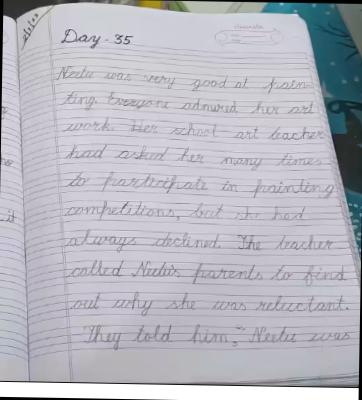 Day - 35
Neetu was very good at pain-
ting. Everyone admired her art
work. Her school art teacher
had asked her many times
to participate in painting
competitions, but she had
always declined. The teacher
called Neetu's parents to find
out why she was reluctant.
They told him, Neetu was
it